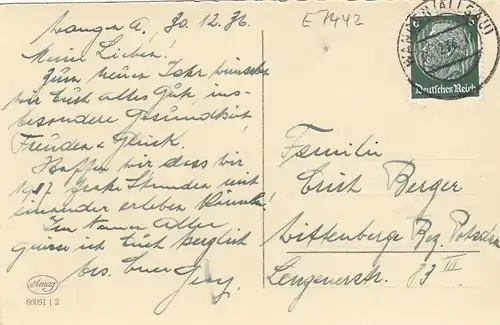 Wangen A. 30.12.36
E 7442
WANGEN (ALLGÄU)
6
Deutsches Reich
Meine Lieben!
Zum neuen Jahr wünschen
wir Euch alles Gute, ins-
besondere Gesundheit,
Freuden & Glück.
Hoffen wir dass wir
1937 frohe Stunden mit
einander erleben können!
Im Namen Aller
grüsse ich Euch herzlich
bes. Euer
Familie
Erich Berger
Wittenberge Bez. Potsdam
Lenzenerstr. 83 III
Amag
66091 | 2